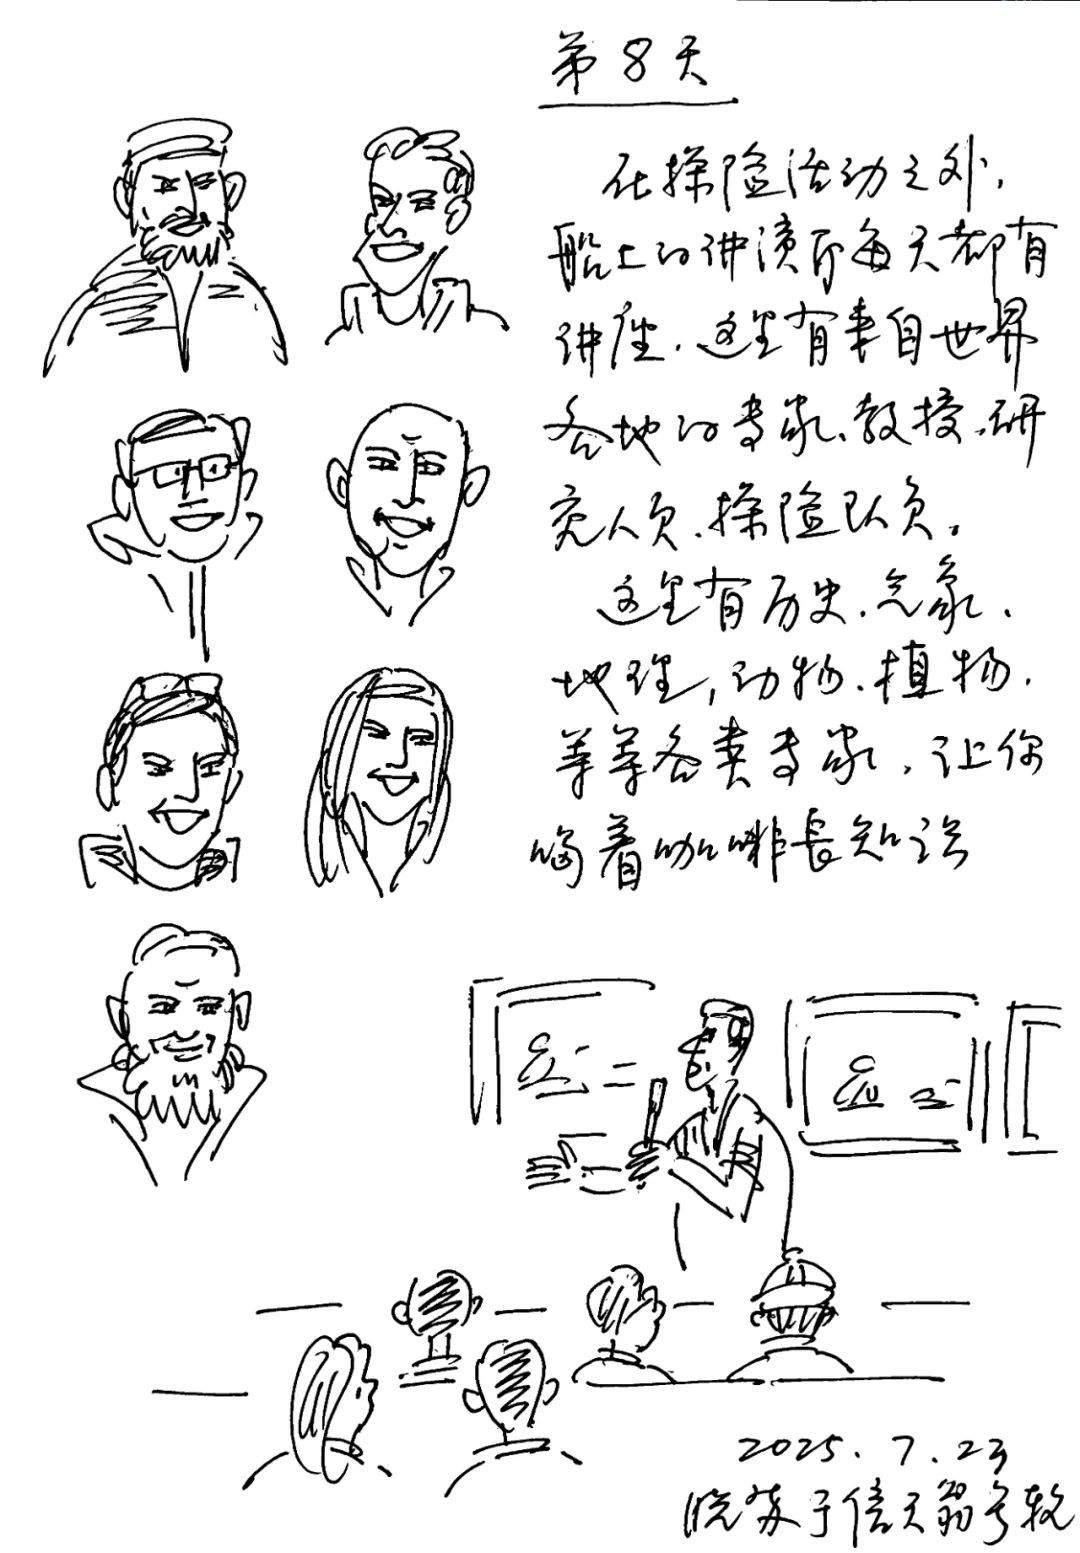 第8天
在探险活动之外,
船上的讲演厅每天都有
讲座.这里有来自世界
各地的专家、教授、研
究人员、探险队员。
这里有历史、气象、
地理,动物、植物、
等等各类专家,让你
喝着咖啡長知识
2025.7.23
晓苏于信天翁号